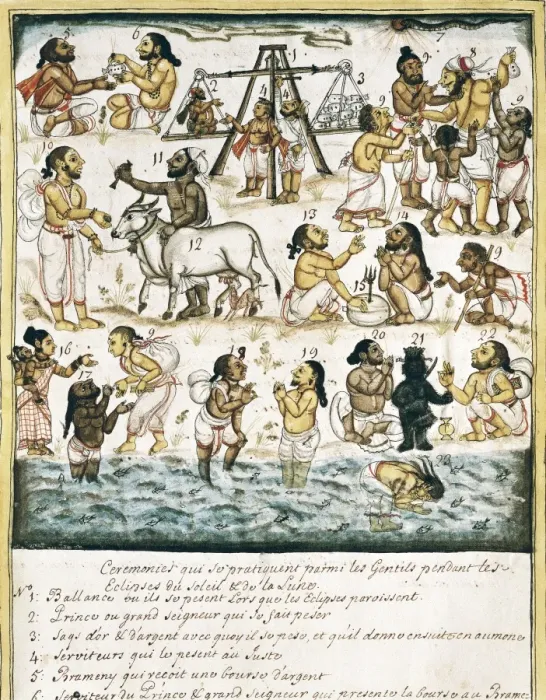 5 6 1 7 8
2 3 9
4 4 9 9
10 11 12 13 14
15 9
16 9 18 19 20 21 22
17
23
Ceremonies qui se pratiquent parmi les Gentils pendant les
Eclipses du Soleil & de la Lune.
N° 1: Ballance ou ils se pesent Lors que les Eclipses paroissent.
2: Prince ou grand Seigneur qui se fait peser
3: Sags d'or & d'argent avec quoy il se pese, et qu'il donne ensuite en aumone
4: Serviteurs qui le pesent au Juste
5: Brameny qui reçoit une bourse d'argent
6: Serviteur du Prince & grand Seigneur qui presente la bourse au Brame-